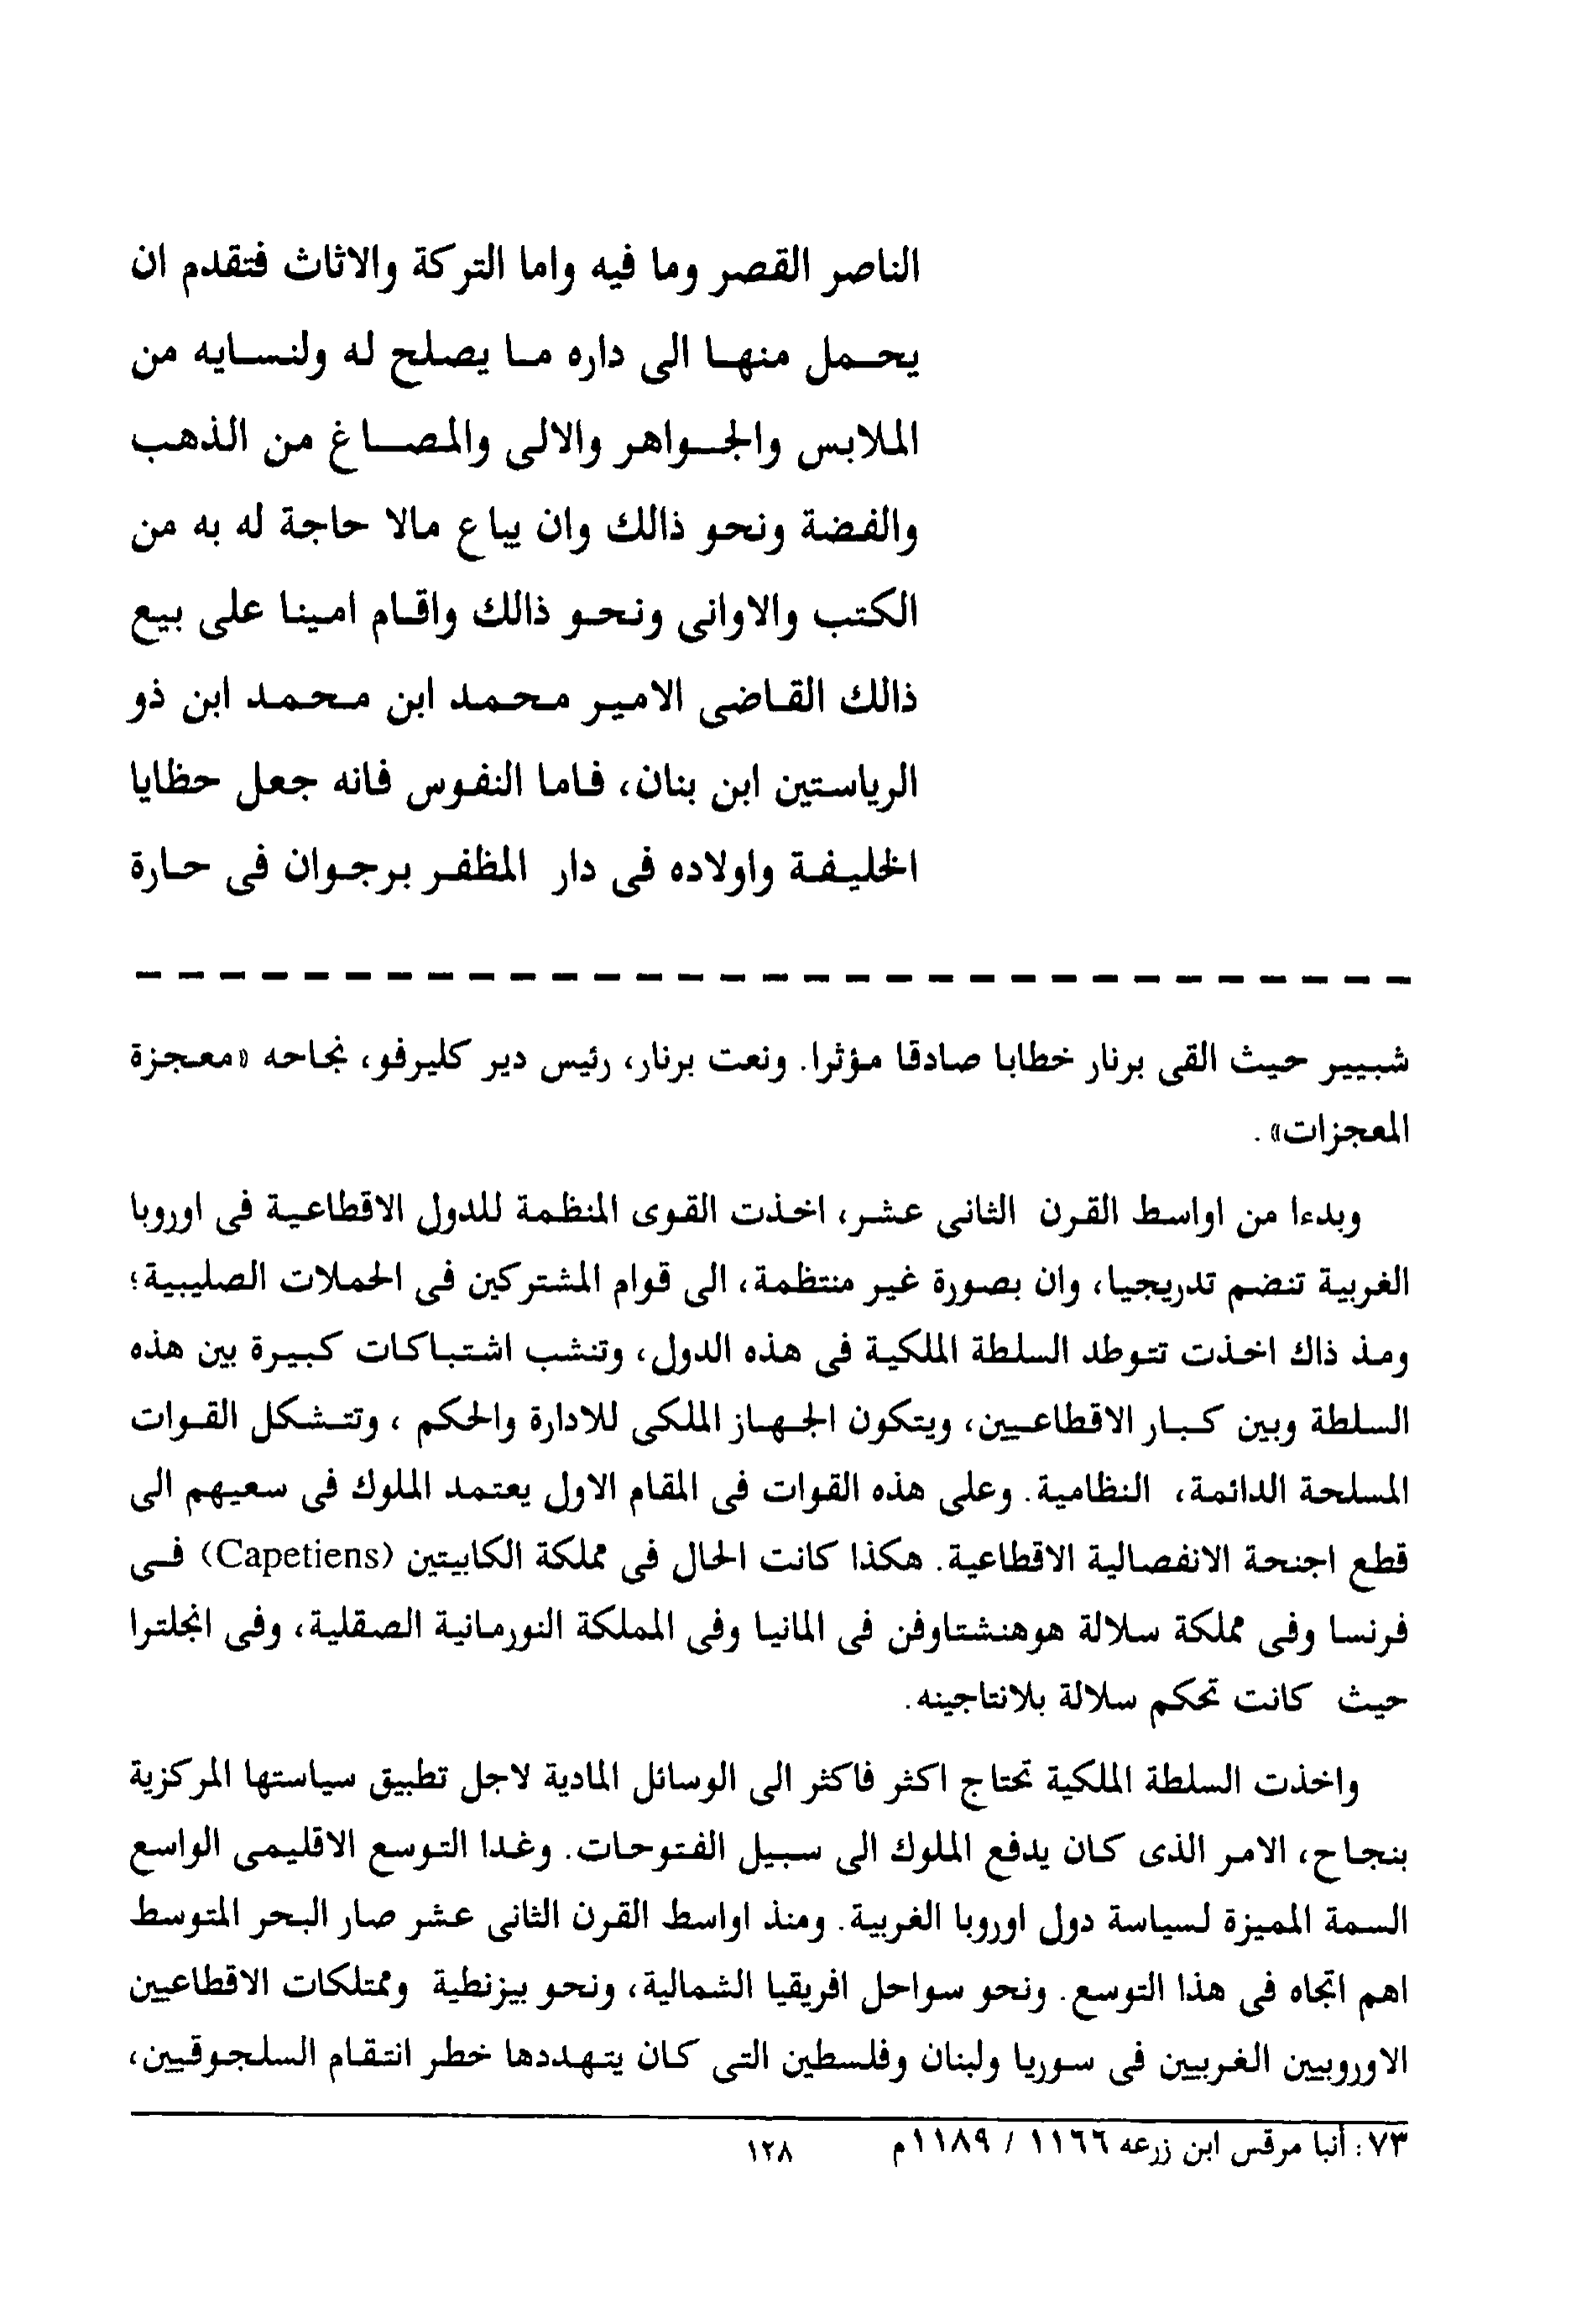 الناصر القصر وما فيه واما التركة والاثاث فتقدم ان
يحمل منها الى داره ما يصلح له ولنسايه من
الملابس والجواهر والالى والمصاغ من الذهب
والفضة ونحو ذالك وان يباع مالا حاجة له به من
الكتب والاوانى ونحو ذالك واقام امينا على بيع
ذالك القاضى الامير محمد ابن محمد ابن ذو
الرياستين ابن بنان، فاما النفوس فانه جعل حظايا
الخليفة واولاده فى دار المظفر برجوان فى حارة
شبيير حيث القى برنار خطابا صادقا مؤثرا. ونعت برنار، رئيس دير كليرفو، نجاحه «معجزة
المعجزات».
وبدءا من اواسط القرن الثانى عشر، اخذت القوى المنظمة للدول الاقطاعية فى اوروبا
الغربية تنضم تدريجيا، وان بصورة غير منتظمة، الى قوام المشتركين فى الحملات الصليبية؛
ومذ ذاك اخذت تتوطد السلطة الملكية فى هذه الدول، وتنشب اشتباكات كبيرة بين هذه
السلطة وبين كبار الاقطاعيين، ويتكون الجهاز الملكى للادارة والحكم ، وتتشكل القوات
المسلحة الدائمة، النظامية. وعلى هذه القوات فى المقام الاول يعتمد الملوك فى سعيهم الى
قطع اجنحة الانفصالية الاقطاعية. هكذا كانت الحال فى مملكة الكابيتين (Capetiens) فى
فرنسا وفى مملكة سلالة هوهنشتاوفن فى المانيا وفى المملكة النورمانية الصقلية، وفى انجلترا
حيث كانت تحكم سلالة بلانتاجينه.
واخذت السلطة الملكية تحتاج اكثر فاكثر الى الوسائل المادية لاجل تطبيق سياستها المركزية
بنجاح، الامر الذى كان يدفع الملوك الى سبيل الفتوحات. وغدا التوسع الاقليمى الواسع
السمة المميزة لسياسة دول اوروبا الغربية. ومنذ اواسط القرن الثانى عشر صار البحر المتوسط
اهم اتجاه فى هذا التوسع. ونحو سواحل افريقيا الشمالية، ونحو بيزنطية وممتلكات الاقطاعيين
الاوروبيين الغربيين فى سوريا ولبنان وفلسطين التى كان يتهددها خطر انتقام السلجوقيين،
٧٣: أنبا مرقس ابن زرعه ١١٦٦ / ١١٨٩م ١٢٨